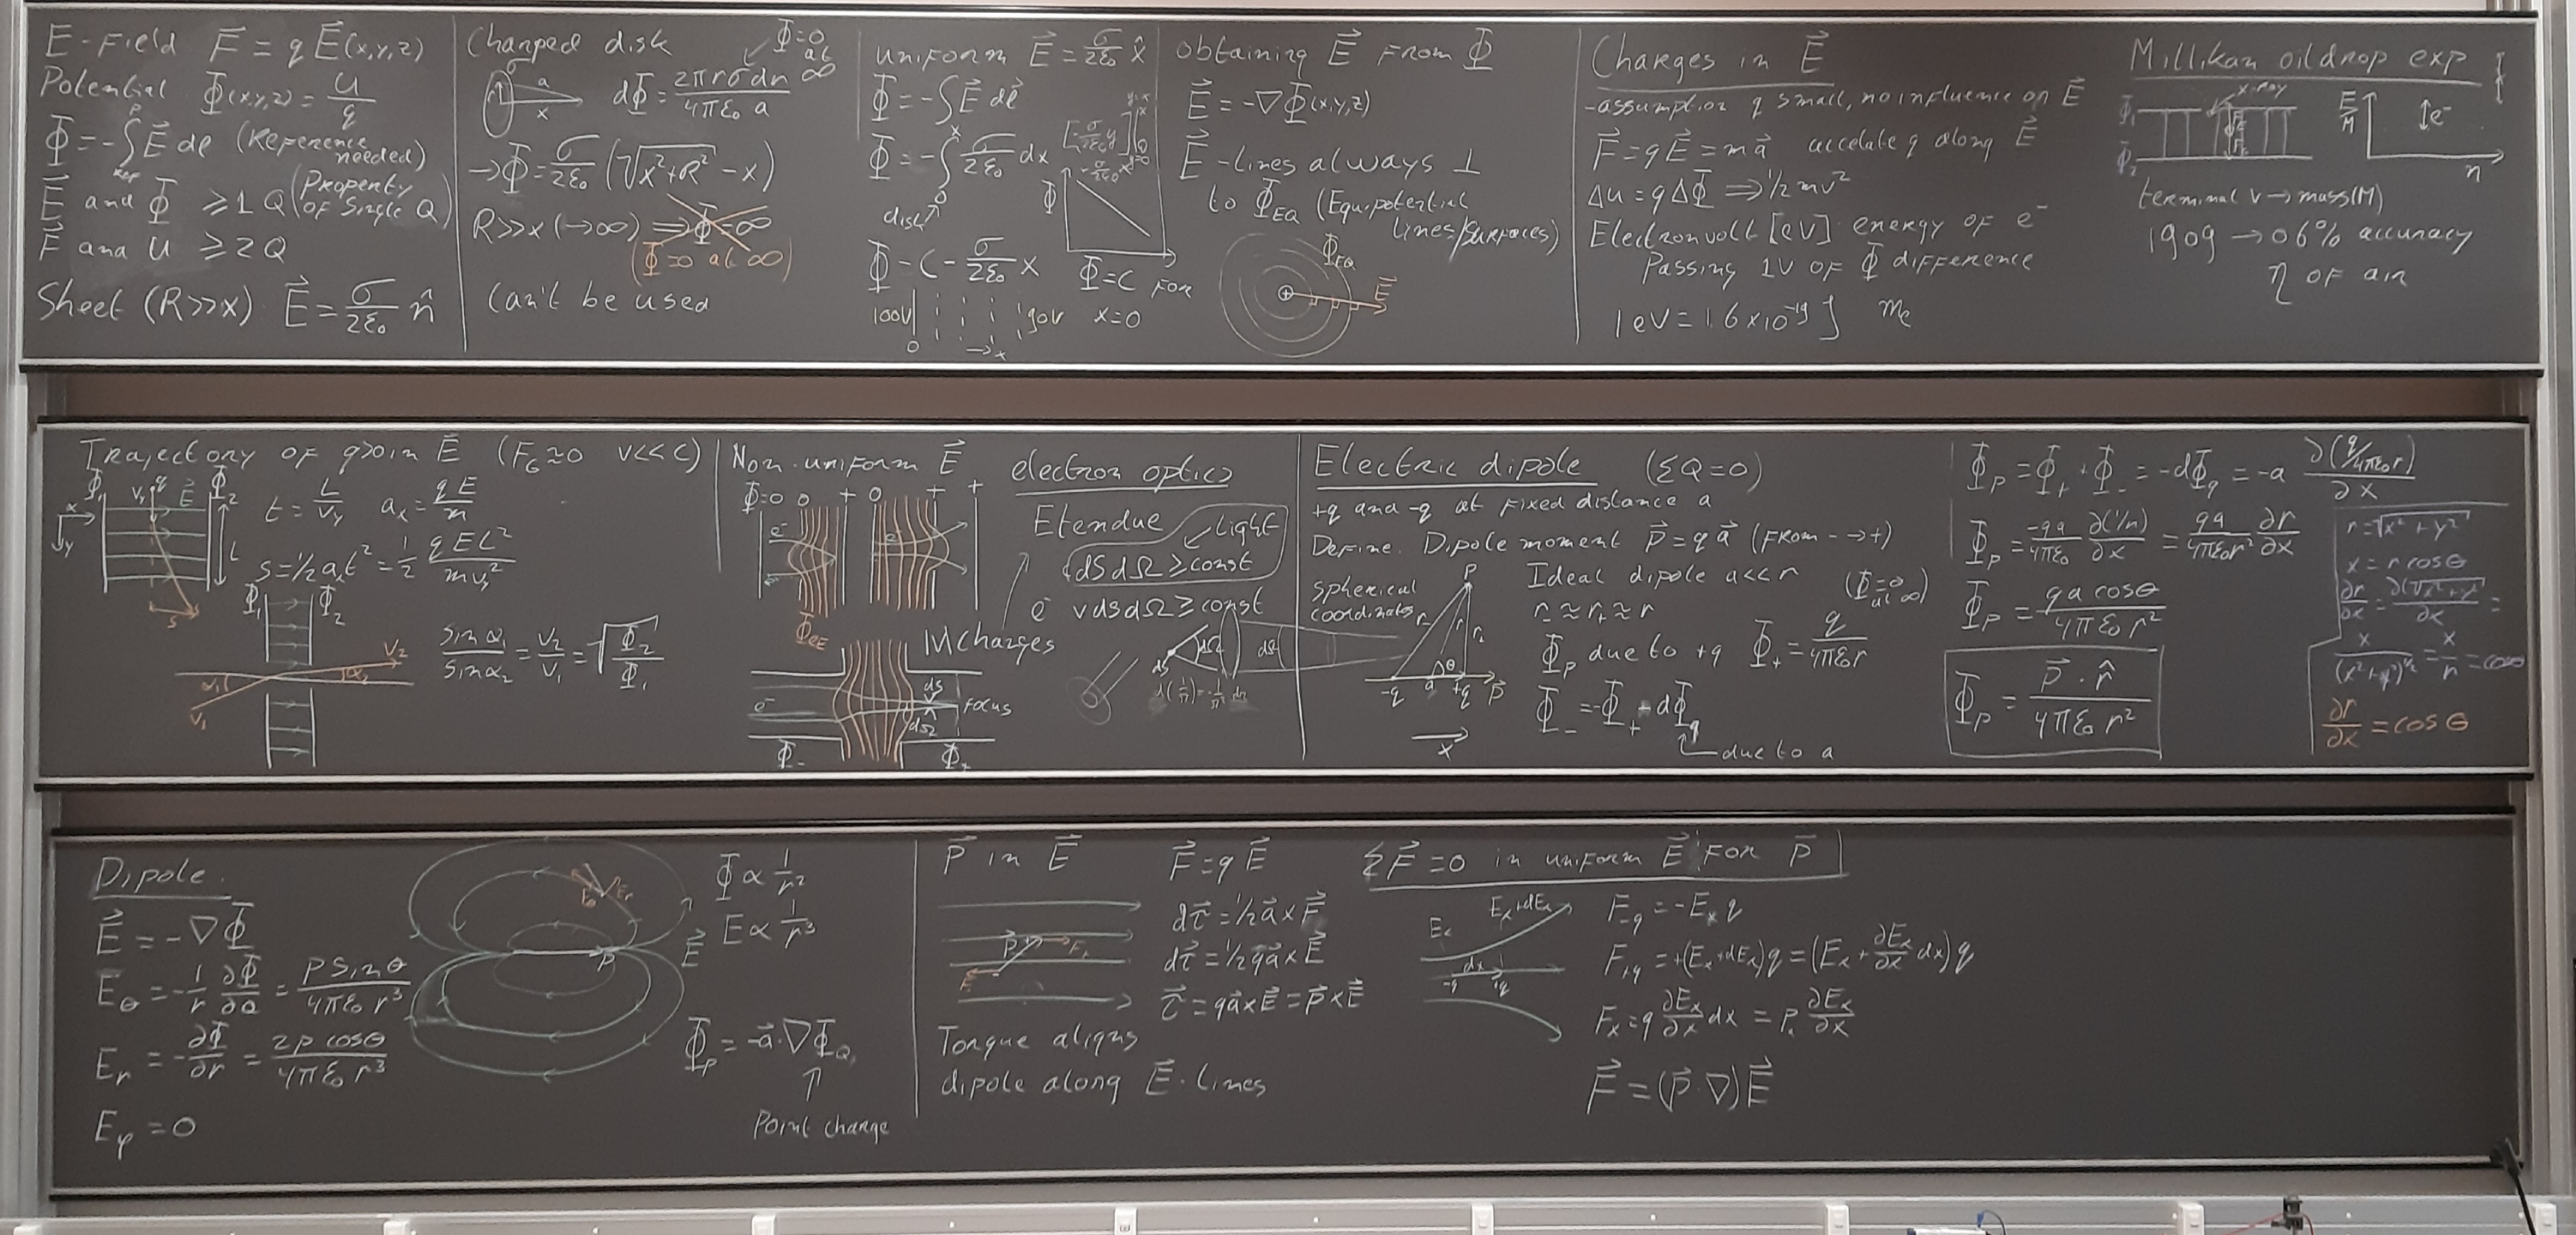 E-Field F⃗ = q E⃗(x,y,z)
Potential Φ(x,y,z) = U/q
Φ = -∫_Ref^P E⃗ dl (Reference needed)
E⃗ and Φ ⩾ 1 Q (Property of single Q)
F⃗ and U ⩾ 2 Q
Sheet (R>>x) E⃗ = σ/2ε₀ n̂
Charged disk
Φ=0 at ∞
σ a x
dΦ = 2πrσdr / 4πε₀ a
→ Φ = σ/2ε₀ (√(x²+R²) - x)
R>>x (→∞) ⇒ Φ=∞
(Φ=0 at ∞)
Can't be used
uniform E⃗ = σ/2ε₀ x̂
Φ = -∫E⃗ dl⃗
Φ = -∫_0^x σ/2ε₀ dx
disk
Φ = C - σ/2ε₀ x
Φ=C for x=0
100V 90V
0 → x
obtaining E⃗ from Φ
E⃗ = -∇Φ(x,y,z)
E⃗-lines always ⊥
to Φ_EQ (Equipotential lines/surfaces)
Φ_EQ
E⃗
Charges in E⃗
-assumption q small, no influence on E⃗
F⃗ = qE⃗ = ma⃗ accelate q along E⃗
Δu = qΔΦ ⇒ ½mv²
Electronvolt [eV] energy of e⁻
Passing 1V of Φ difference
1eV = 1.6×10⁻¹⁹ J
Millikan oil drop exp
X-ray
Φ₁
Φ₂
E/M
e⁻
n
terminal v → mass(M)
1909 → 0.6% accuracy
η of air
Trajectory of q>0 in E⃗ (F_G≈0 v<<c)
Φ₁ v_y q E⃗ Φ₂
x
y
L
s
t = L/v_y a_x = qE/m
s = ½a_x t² = ½ qEL²/mv_y²
Φ₁ Φ₂
α₁ α₂
v₁ v₂
sinα₁/sinα₂ = v₂/v₁ = √(Φ₂/Φ₁)
Non-uniform E⃗
Φ=0 0 + 0 + +
e⁻
Φ_EQ
e⁻ ds dΩ Focus
Φ₋ Φ₊
electron optics
Etendue
Light
dS dΩ ≥ const
e⁻ v ds dΩ ≥ const
Mcharges
ds dΩ
Electric dipole (ΣQ=0)
+q and -q at fixed distance a
Define. Dipole moment p⃗ = q a⃗ (From - → +)
spherical coordinates
P
-q a +q p⃗
θ
x
Ideal dipole a<<r
r₋ ≈ r₊ ≈ r
(Φ=0 at ∞)
Φ_P due to +q Φ₊ = q/4πε₀r
Φ₋ = -Φ₊ - dΦ_q
due to a
Φ_P = Φ₊ + Φ₋ = -dΦ_q = -a ∂(q/4πε₀r)/∂x
Φ_P = -qa/4πε₀ ∂(1/r)/∂x = qa/4πε₀r² ∂r/∂x
Φ_P = qa cosθ / 4πε₀ r²
Φ_P = p⃗·r̂ / 4πε₀ r²
r = √(x²+y²)
x = r cosθ
∂r/∂x = ∂(√(x²+y²))/∂x =
x/(x²+y²)^½ = x/r = cosθ
∂r/∂x = cosθ
Dipole.
E⃗ = -∇Φ
E_θ = -1/r ∂Φ/∂θ = p sinθ / 4πε₀ r³
E_r = -∂Φ/∂r = 2p cosθ / 4πε₀ r³
E_φ = 0
E_θ E_r
p
E⃗
Φ ∝ 1/r²
E ∝ 1/r³
Φ_P = -a⃗·∇Φ_Q
Point charge
P⃗ in E⃗
F⃗ = q E⃗
dτ⃗ = ½ a⃗ × F⃗
dτ⃗ = ½ q a⃗ × E⃗
τ⃗ = q a⃗ × E⃗ = p⃗ × E⃗
Torque aligns
dipole along E⃗-lines
ΣF⃗ = 0 in uniform E⃗ for p⃗
E_x E_x+dE_x
dx
-q +q
F₋q = -E_x q
F₊q = +(E_x+dE_x)q = (E_x + ∂E_x/∂x dx)q
F_x = q ∂E_x/∂x dx = p_x ∂E_x/∂x
F⃗ = (p⃗·∇)E⃗